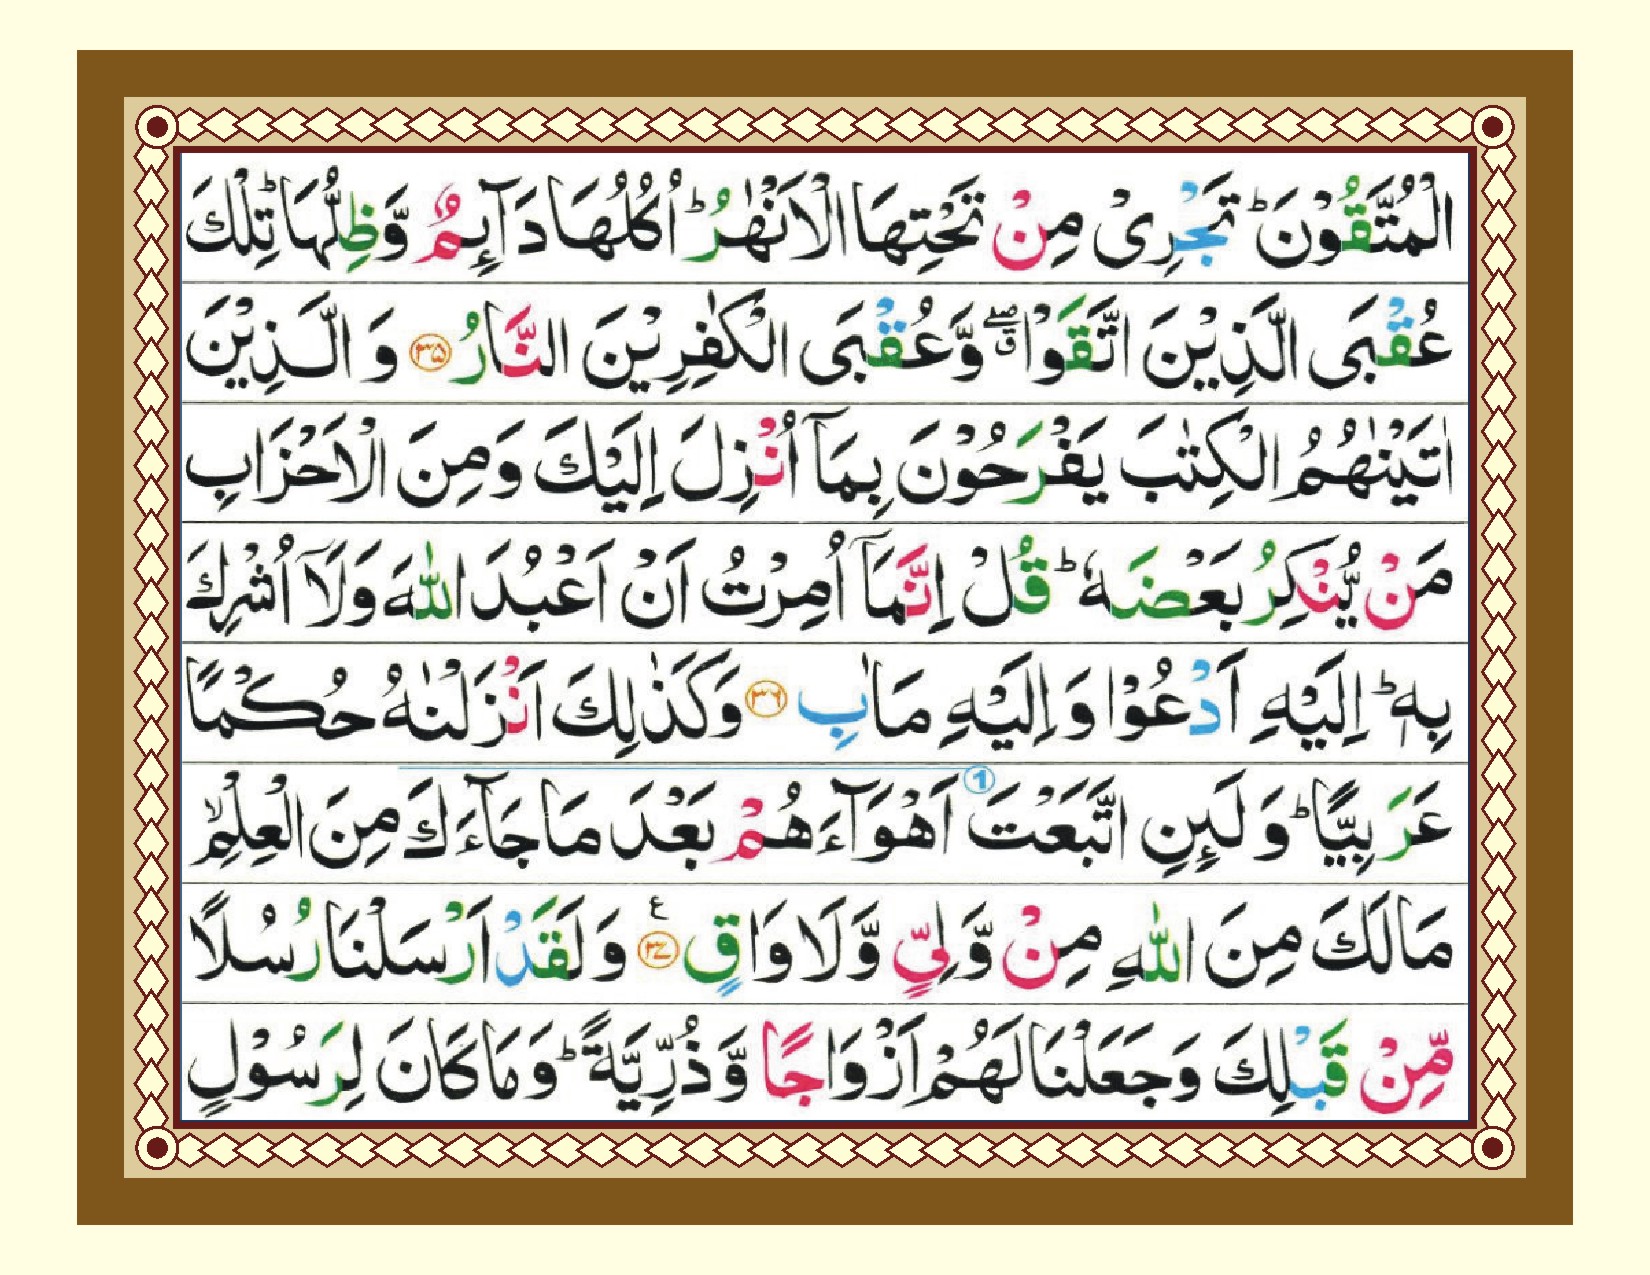 الْمُتَّقُوْنَ ؕ تَجْرِیْ مِنْ تَحْتِهَا الْاَنْهٰرُ ؕ اُكُلُهَا دَآىِٕمٌ وَّ ظِلُّهَا ؕ تِلْكَ
عُقْبَی الَّذِیْنَ اتَّقَوْا ۖۗ وَّ عُقْبَی الْكٰفِرِیْنَ النَّارُ ﴿۳۵﴾ وَ الَّذِیْنَ
اٰتَیْنٰهُمُ الْكِتٰبَ یَفْرَحُوْنَ بِمَاۤ اُنْزِلَ اِلَیْكَ وَ مِنَ الْاَحْزَابِ
مَنْ یُّنْكِرُ بَعْضَهٗ ؕ قُلْ اِنَّمَاۤ اُمِرْتُ اَنْ اَعْبُدَ اللّٰهَ وَ لَاۤ اُشْرِكَ
بِهٖ ؕ اِلَیْهِ اَدْعُوْا وَ اِلَیْهِ مَاٰبِ ﴿۳۶﴾ وَ كَذٰلِكَ اَنْزَلْنٰهُ حُكْمًا
عَرَبِیًّا ؕ وَ لَىِٕنِ اتَّبَعْتَ 1 اَهْوَآءَهُمْ بَعْدَ مَا جَآءَكَ مِنَ الْعِلْمِ ۙ
مَا لَكَ مِنَ اللّٰهِ مِنْ وَّلِیٍّ وَّ لَا وَاقٍ ﴿۳۷﴾ ع وَ لَقَدْ اَرْسَلْنَا رُسُلًا
مِّنْ قَبْلِكَ وَ جَعَلْنَا لَهُمْ اَزْوَاجًا وَّ ذُرِّیَّةً ؕ وَ مَا كَانَ لِرَسُوْلٍ